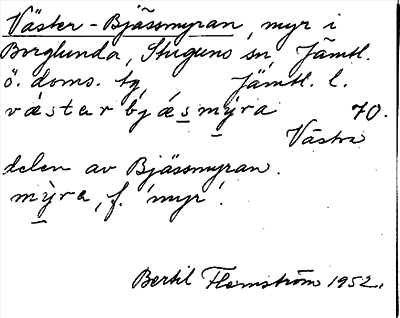 Väster-Bjässmyran, myr i
Borglunda, Stuguns sn, Jämtl.
ö. doms. tg, Jämtl. l.
västar bjásmýra 70.
Västra
delen av Bjässmyran.
mỳra, f. 'myr'.
Bertil Flemström 1952.